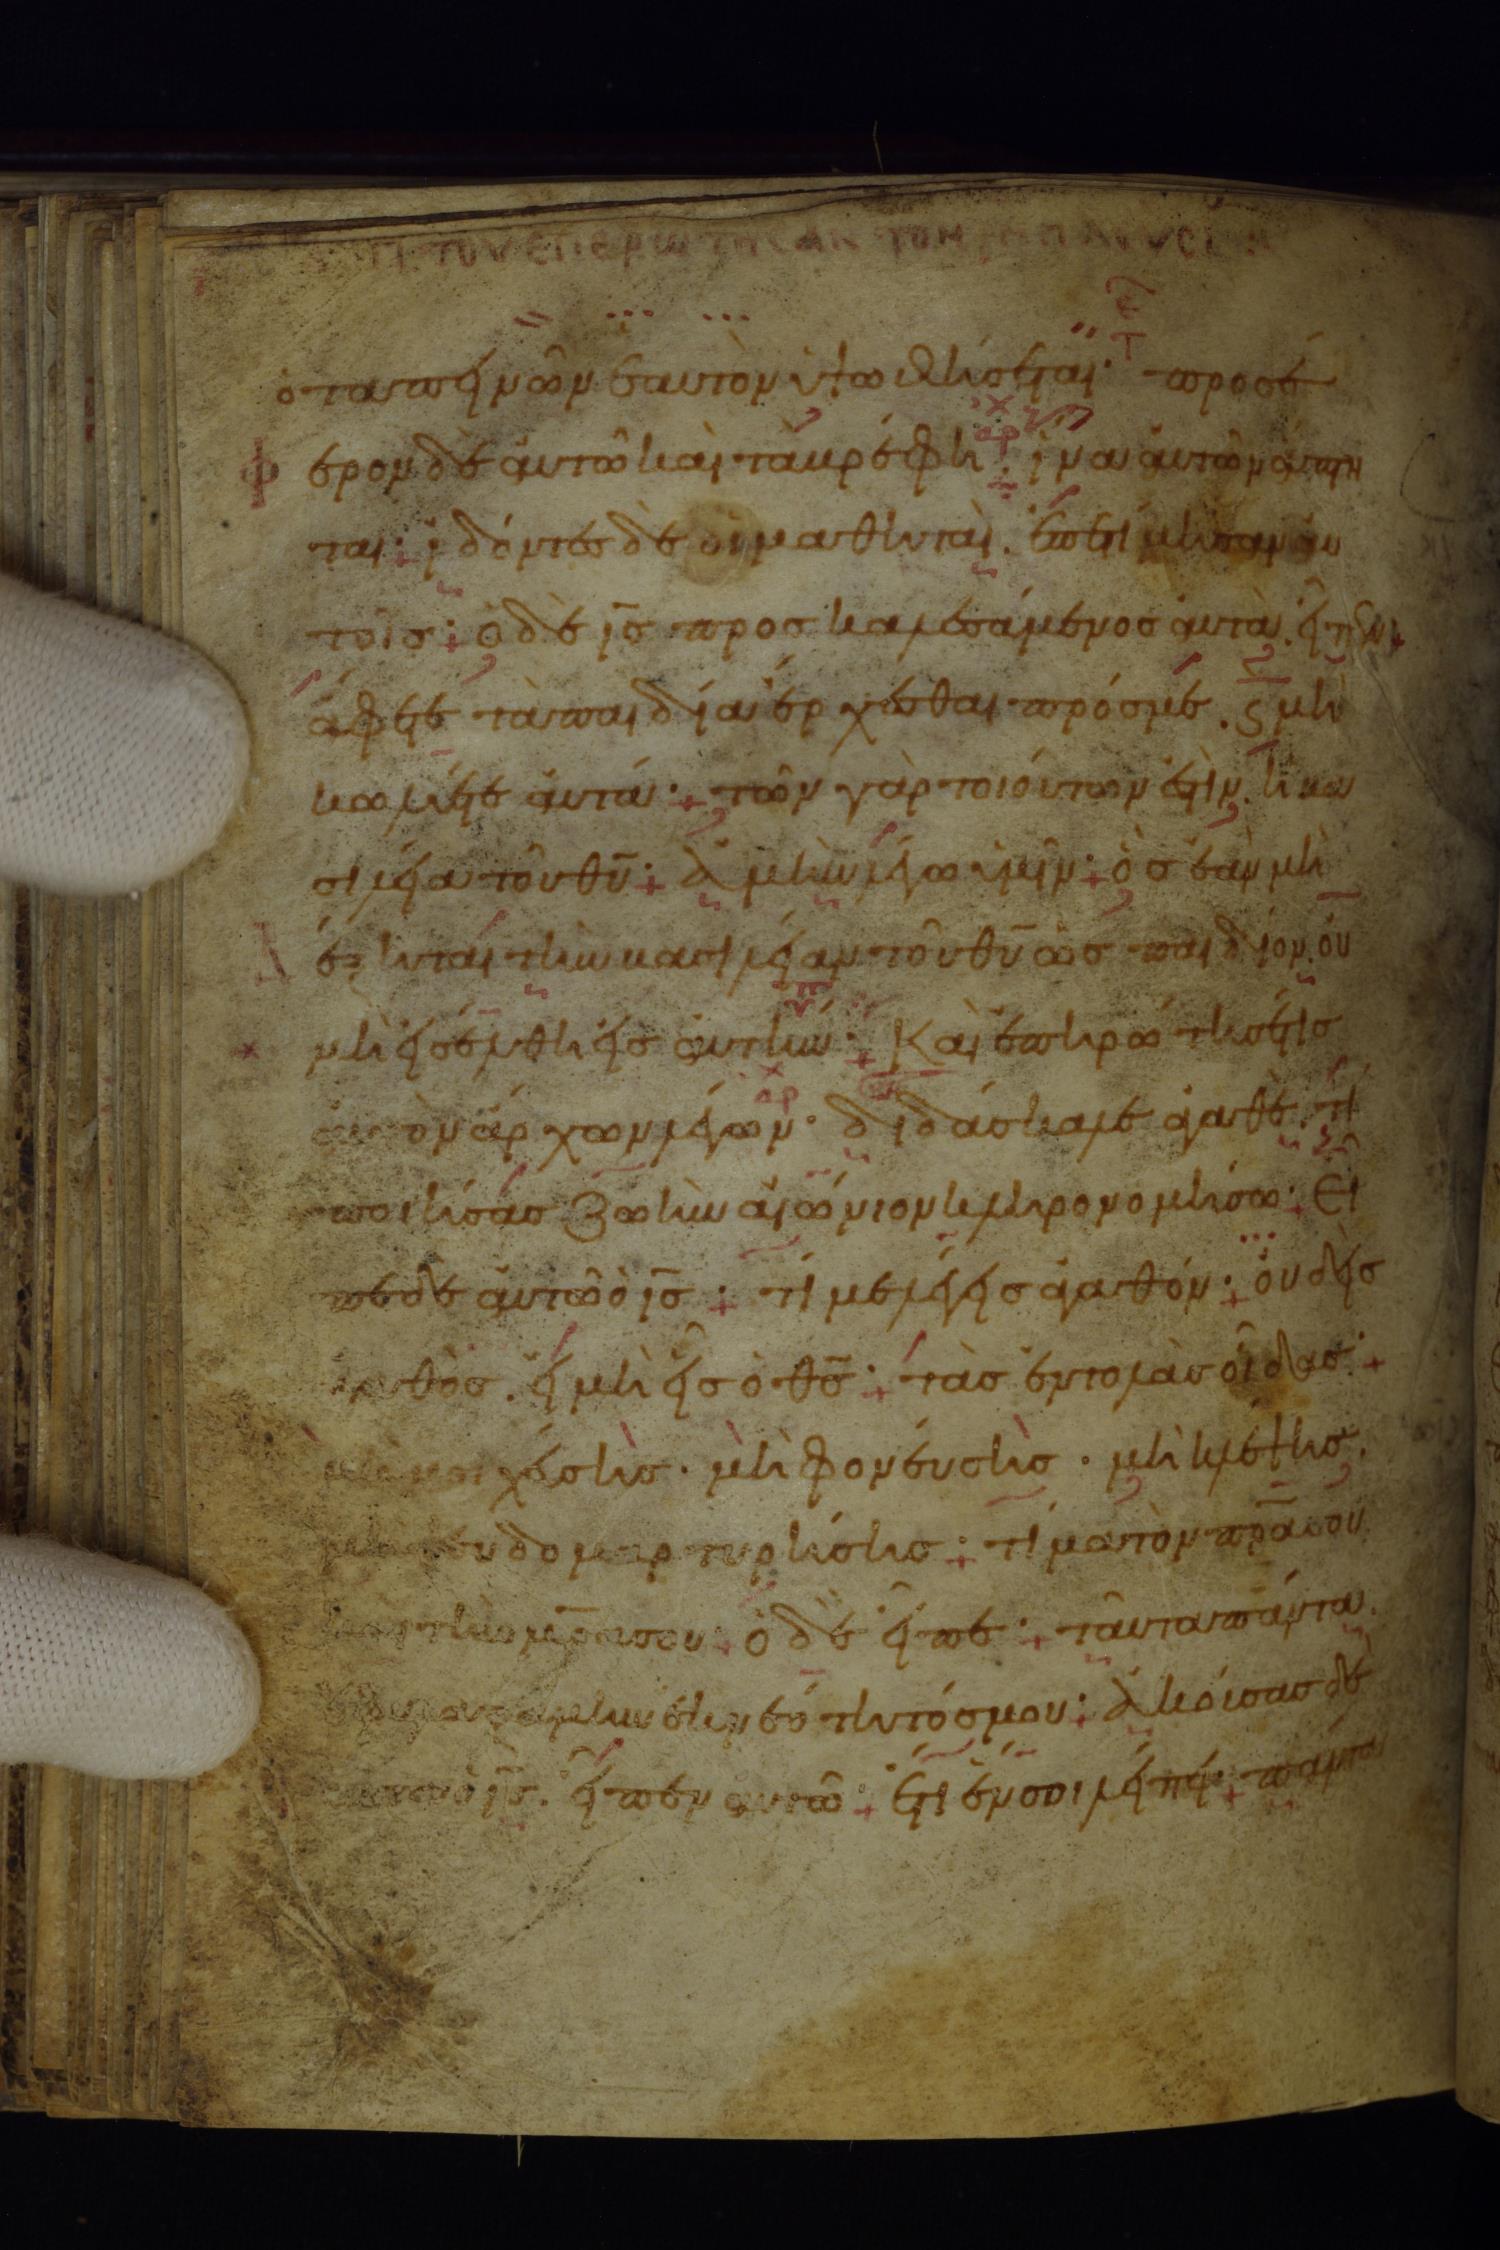 ὁ ταπεινῶν ἑαυτὸν ὑψωθήσεται· προσέ
φερον δὲ αὐτῶ καὶ τὰ βρέφη· ἵνα αὐτῶν ἅπτη
ται· ἰδόντες δὲ οἱ μαθηταὶ. ἐπετίμησαν αὐ
τοῖς· ὁ δὲ ις προσκαλεσάμενος αὐτὰ. εἶπεν·
ἄφετε τὰ παιδία ἔρχεσθαι πρός με. ϛ μὴ
κωλύετε αὐτά· τῶν γὰρ τοιούτων ἐστὶν. ἡ βα
σιλεία τοῦ θυ· ἀμὴν λέγω ὑμῖν· ὃς ἐὰν μὴ
δέξηται τὴν βασιλείαν τοῦ θυ ὡς παιδίον. οὐ
μὴ εἰσέλθη εἰς αὐτήν· Καὶ ἐπηρώτησέ τις
αὐτὸν ἄρχων λέγων· διδάσκαλε ἀγαθὲ. τί
ποιήσας ζωὴν αἰώνιον κληρονομήσω· Εἶ
πε δὲ αὐτῶ ὁ ις· τί με λέγεις ἀγαθόν· οὐδεὶς
ἀγαθὸς. εἰ μὴ εἷς ὁ θς· τὰς ἐντολὰς οἶδας·
μὴ μοιχεύσης· μὴ φονεύσης· μὴ κλέψης.
μὴ ψευδομαρτυρήσης· τίμα τὸν πρα σου
καὶ τὴν μρα σου· ὁ δὲ εἶπε· ταῦτα πάντα.
ἐφυλαξάμην ἐκ νεότητός μου· ἀκούσας δὲ
ταῦτα ὁ ις. εἶπεν αὐτῶ· ἔτι ἕν σοι λείπει· πάντα